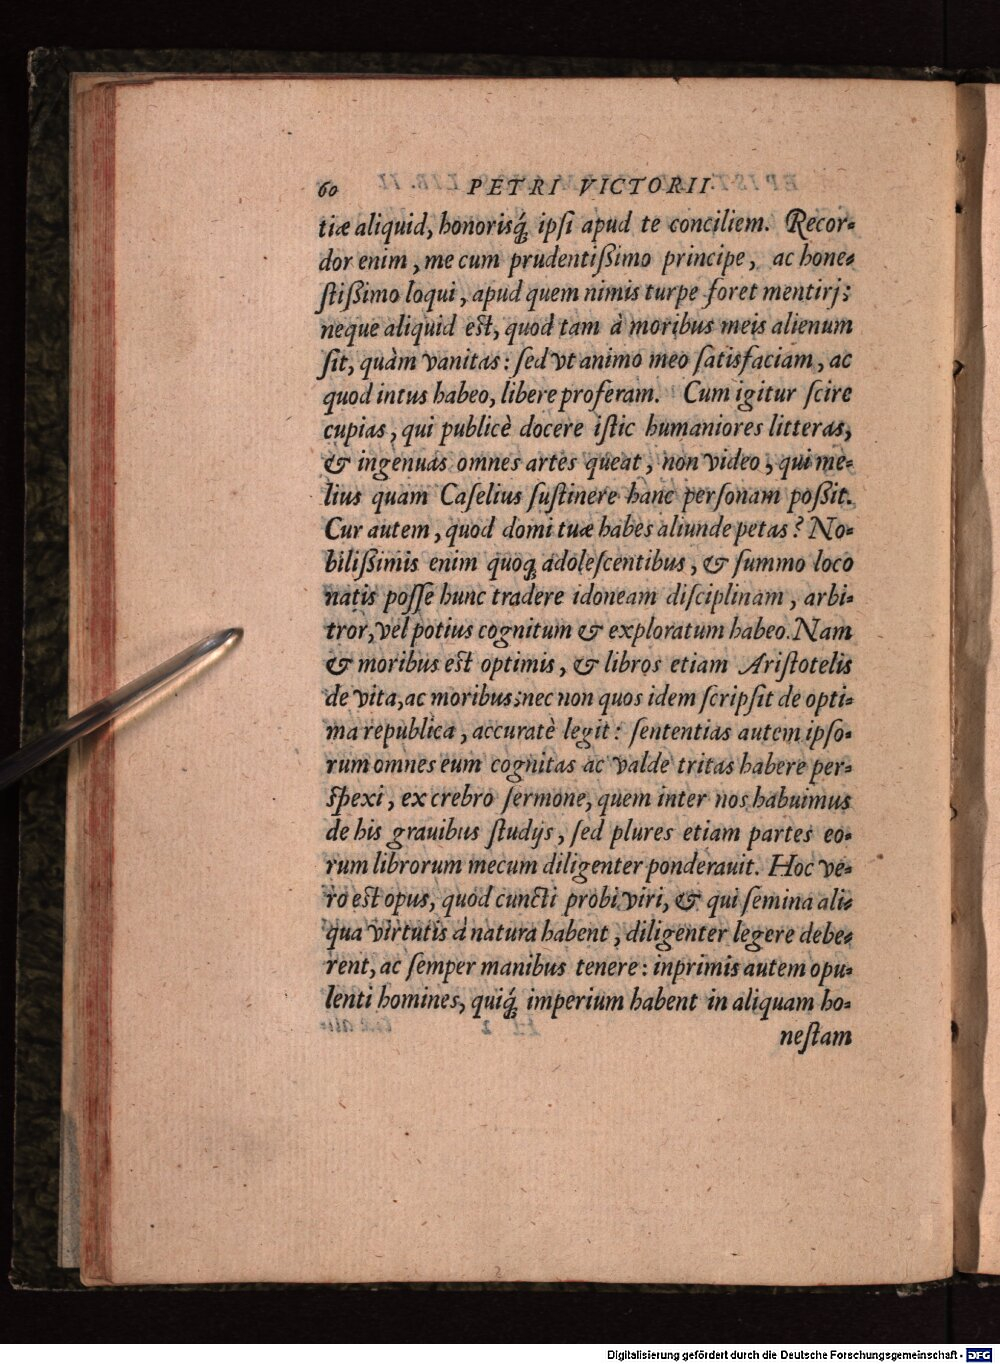 60 PETRI VICTORII
tiæ aliquid, honorisq́; ipſi apud te conciliem. Recor-
dor enim, me cum prudentißimo principe, ac hone-
ſtißimo loqui, apud quem nimis turpe foret mentirj;
neque aliquid eſt, quod tam à moribus meis alienum
ſit, quàm vanitas: ſed vt animo meo ſatisfaciam, ac
quod intus habeo, libere proferam. Cum igitur ſcire
cupias, qui publicè docere iſtic humaniores litteras,
& ingenuas omnes artes queat, non video, qui me-
lius quam Caſelius ſuſtinere hanc perſonam poßit.
Cur autem, quod domi tuæ habes aliunde petas? No-
bilißimis enim quoq; adoleſcentibus, & ſummo loco
natis poſſe hunc tradere idoneam diſciplinam, arbi-
tror, vel potius cognitum & exploratum habeo. Nam
& moribus eſt optimis, & libros etiam Ariſtotelis
de vita, ac moribus; nec non quos idem ſcripſit de opti-
ma republica, accuratè legit: ſententias autem ipſo-
rum omnes eum cognitas ac valde tritas habere per-
ſpexi, ex crebro ſermone, quem inter nos habuimus
de his grauibus ſtudijs, ſed plures etiam partes eo-
rum librorum mecum diligenter ponderauit. Hoc ve-
ro eſt opus, quod cuncti probi viri, & qui ſemina ali-
qua virtutis à natura habent, diligenter legere debe-
rent, ac ſemper manibus tenere: inprimis autem opu-
lenti homines, quiq́; imperium habent in aliquam ho-
neſtam
Digitalisierung gefördert durch die Deutsche Forschungsgemeinschaft - DFG